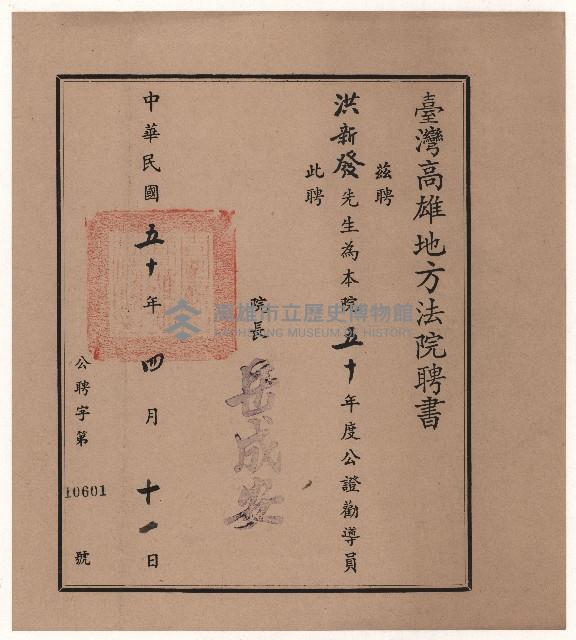 臺灣高雄地方法院聘書
茲聘
洪新發先生為本院五十年度公證勸導員
此聘
院長 岳成安
中華民國五十年四月十一日
公聘字第10601號
高雄市立歷史博物館
KAOHSIUNG MUSEUM OF HISTORY